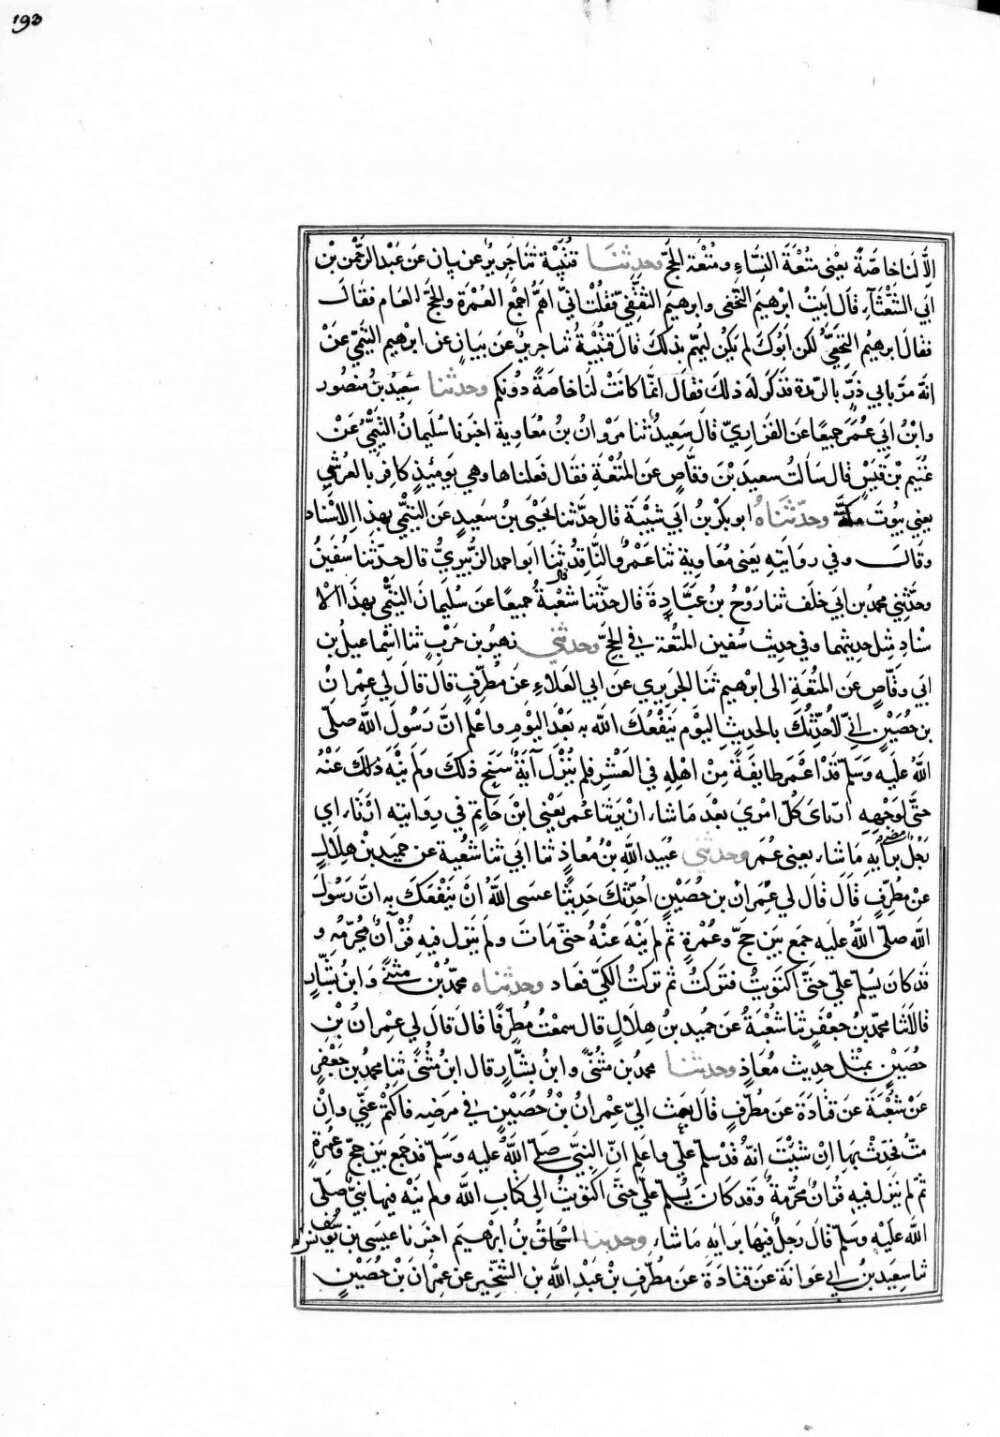 ١٩٥
الا لنا خاصة يعنى متعة النساء ومتعة الحج وحدثنا قتيبة ثنا جرير عن بيان عن عبد الرحمن بن
ابي الشعثاء قال اتيت ابرهيم النخعى وابرهيم التيمي فقلت اني اهم اجمع العمرة والحج العام فقال
فقال ابرهيم النخعي لكن ابوك لم يكن ليهم بذلك قال قتيبة ثنا جرير عن بيان عن ابرهيم التيمي عن
انه مر بابي ذر بالربذة فذكر له ذلك فقال انما كانت لنا خاصة دونكم وحدثنا سعيد بن منصور
وابن ابي عمر جميعا عن الفزاري قال سعيد ثنا مروان بن معاوية اخبرنا سليمان التيمي عن
غنيم بن قيس قال سالت سعيد بن وقاص عن المتعة فقال فعلناها وهي يومئذ كافر بالعرش
يعني بيوت مكة وحدثناه ابو بكر بن ابي شيبة قال حدثنا يحيى بن سعيد عن التيمي بهذا الاسناد
وقال وفي روايته يعنى معاوية ثنا عمرو الناقد ثنا ابو احمد الزبيري قال حدثنا سفين
وحدثني محمد بن ابي خلف ثنا روح بن عبادة قال حدثنا شعبة جميعا عن سليمان التيمي بهذا الا
سناد مثل حديثهما وفي حديث سفين المتعة في الحج وحدثني زهير بن حرب ثنا اسماعيل بن
ابي وقاص عن المتعة الى ابرهيم ثنا الجريري عن ابي العلاء عن مطرف قال قال لي عمران
بن حصين اني لاحدثك بالحديث اليوم ينفعك الله به بعد اليوم واعلم ان رسول الله صلى
الله عليه وسلم قد اعمر طايفة من اهله في العشر فلم تنزل آية تنسخ ذلك ولم ينه ذلك عنه
حتى لوجهه ارتاى كل امرى بعد ما شاء ان يرتئا عمر يعنى ابن حاتم في روايته ارتاء اي
رجل برايه ما شاء يعنى عمر وحدثني عبيد الله بن معاذ ثنا ابي ثنا شعبة عن حميد بن هلال
عن مطرف قال قال لي عمران بن حصين احدثك حديثا عسى الله ان ينفعك به ان رسول
الله صلى الله عليه جمع بين حج وعمرة ثم لم ينه عنه حتى مات ولم ينزل فيه قرآن يحرمه و
قد كان يسلم علي حتى اكتويت فتركت ثم تركت الكي فعاد وحدثناه محمد بن مثنى وابن بشار
قالا ثنا محمد بن جعفر ثنا شعبة عن حميد بن هلال قال سمعت مطرفا قال قال لي عمران بن
حصين بمثل حديث معاذ وحدثنا محمد بن مثنى وابن بشار قال ابن مثنى ثنا محمد بن جعفر
عن شعبة عن قتادة عن مطرف قال بعث الي عمران بن حصين في مرضه فاكتم عني وان
مت فحدث بها ان شيت انه قد سلم علي واعلم ان النبي صلى الله عليه وسلم قد جمع بين حج وعمرة
ثم لم ينزل فيه قران محرمة وقد كان يسلم علي حتى اكتويت الى كتاب الله ولم ينه فيها نبي صلى
الله عليه وسلم قال رجل فيها برايه ما شاء وحدثنا اسحاق بن ابرهيم اخبرنا عيسى بن يونس
ثنا سعيد بن ابي عوانة عن قتادة عن مطرف بن عبد الله بن الشخير عن عمران بن حصين